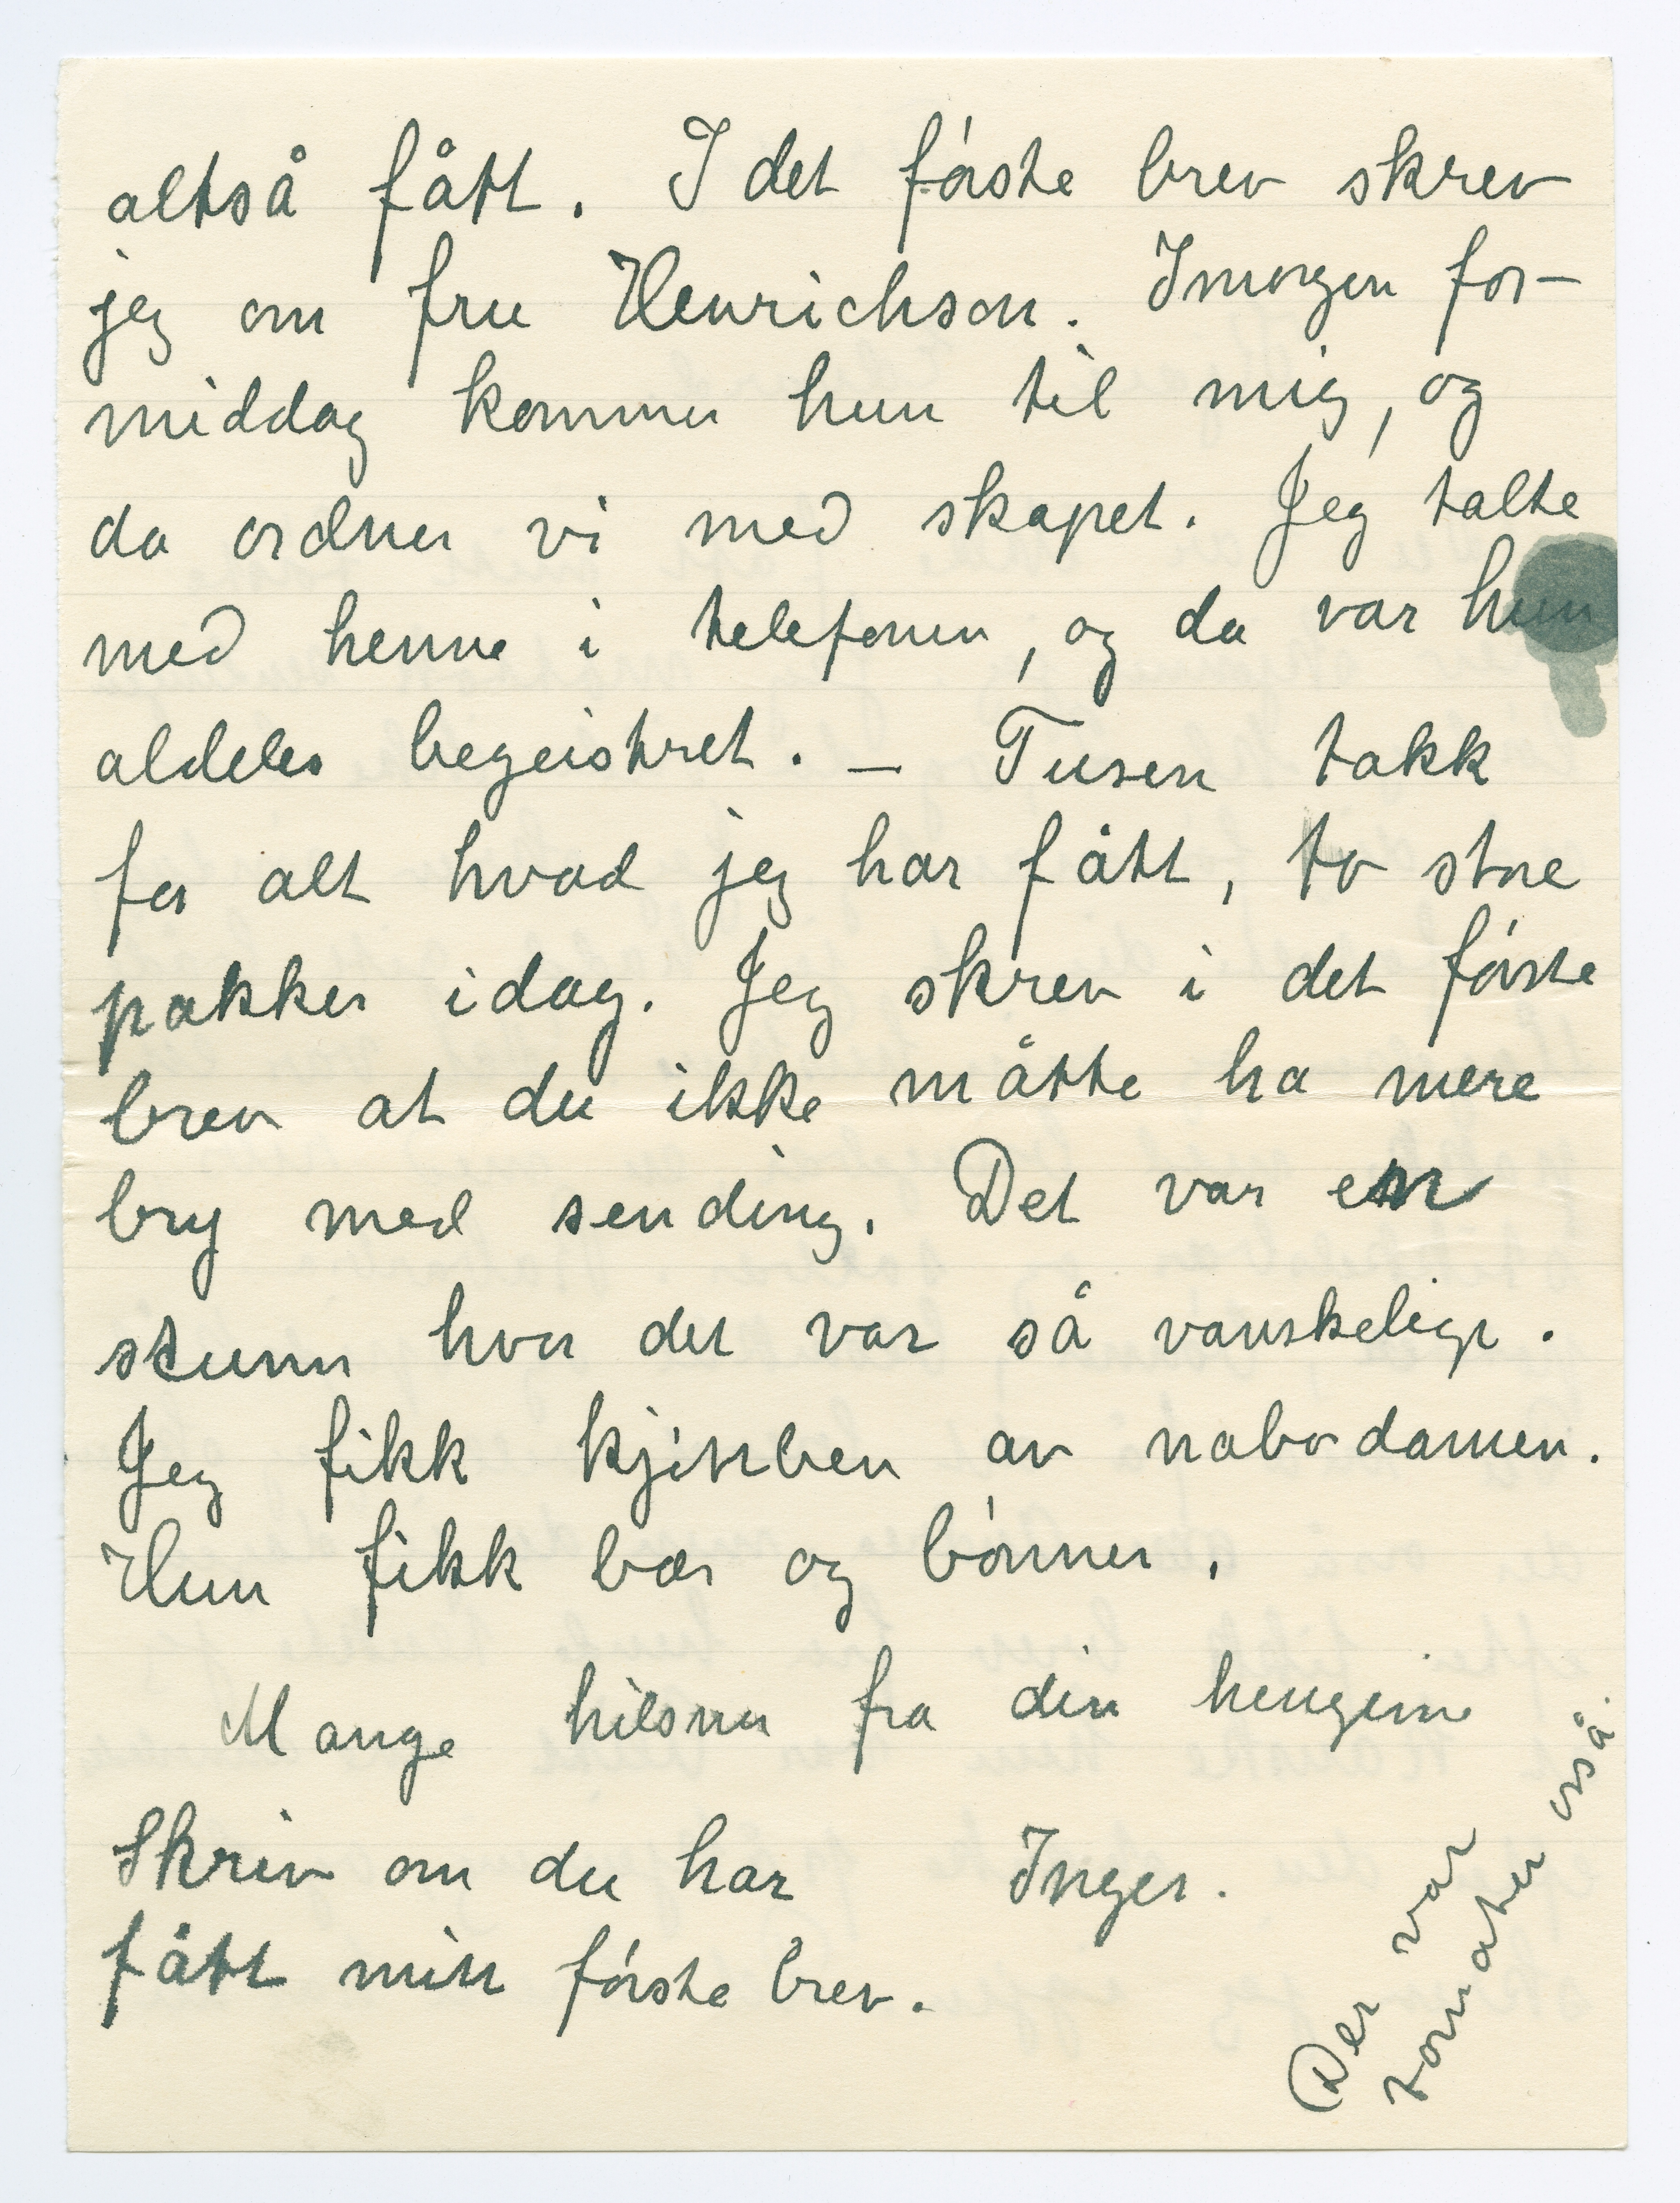 altså fått. I det fórste brev skrev
jeg om fru Henrichson. Imorgen for-
middag kommer hun til mig, og
da ordner vi med skapet. Jeg talte
med henne i telefonen, og da var hun
aldeles begeistret. — Tusen takk
for alt hvad jeg har fått, to store
pakker idag. Jeg skrev i det fórste
brev at du ikke måtte ha mere
bry med sending. Det var en
stunn hvor det var så vanskelig.
Jeg fikk kjøttben av nabodamen.
Hun fikk bær og bónner.
Mange hilsner fra din hengivne
Inger.
Skriv om du har
fått mitt fórste brev.
Der var
tomater osså.